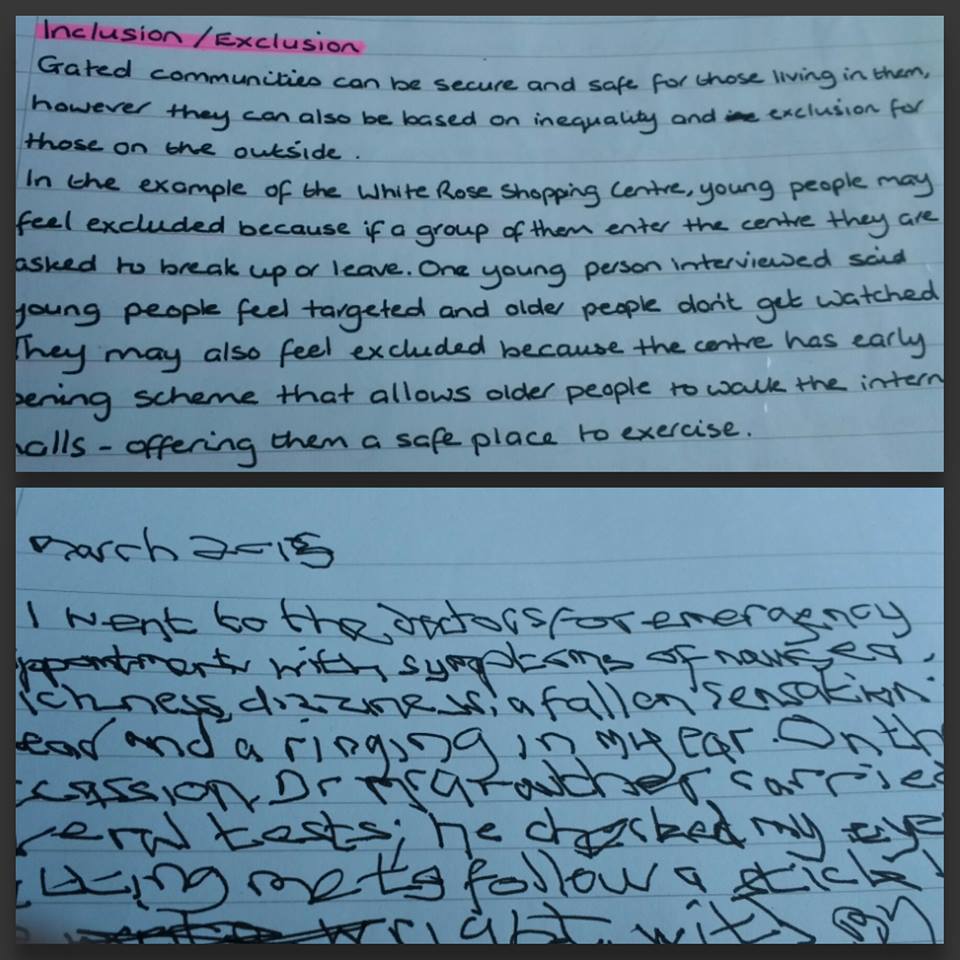 Inclusion / Exclusion
Gated communities can be secure and safe for those living in them,
however they can also be based on inequality and exclusion for
those on the outside.
In the example of the White Rose Shopping Centre, young people may
feel excluded because if a group of them enter the centre they are
asked to break up or leave. One young person interviewed said
young people feel targeted and older people don't get watched
They may also feel excluded because the centre has early
pening scheme that allows older people to walk the intern
alls - offering them a safe place to exercise.
March
I went to the doctors for emergency
with symptoms of
dizziness, a fallen sensation
and a ringing in my ear. On th
Dr carried
tests; he checked my eye
follow a stick
right with my